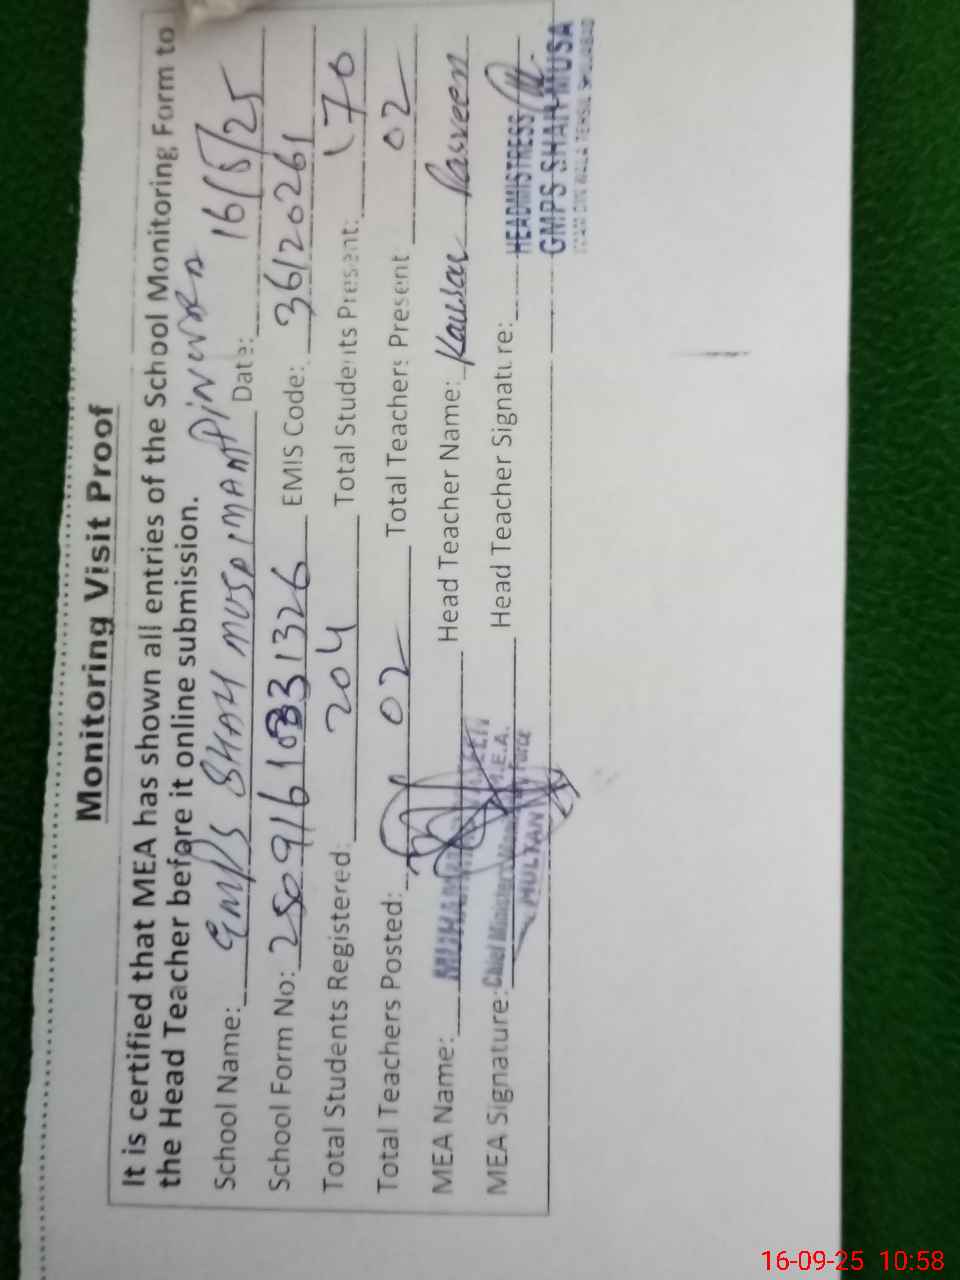 Monitoring Visit Proof
It is certified that MEA has shown all entries of the School Monitoring Form to
the Head Teacher before it online submission.
School Name: GMPS SHAH MUSA Date: 16/8/25
School Form No: EMIS Code: 36120261
Total Students Registered: 204 Total Students Present: 170
Total Teachers Posted: 02 Total Teachers Present 02
MEA Name: Head Teacher Name: Kausar Parveen
MEA Signature: Head Teacher Signature:
M.E.A.
Chief Minister Force
MULTAN
HEADMISTRESS
GMPS SHAH MUSA
16-09-25 10:58